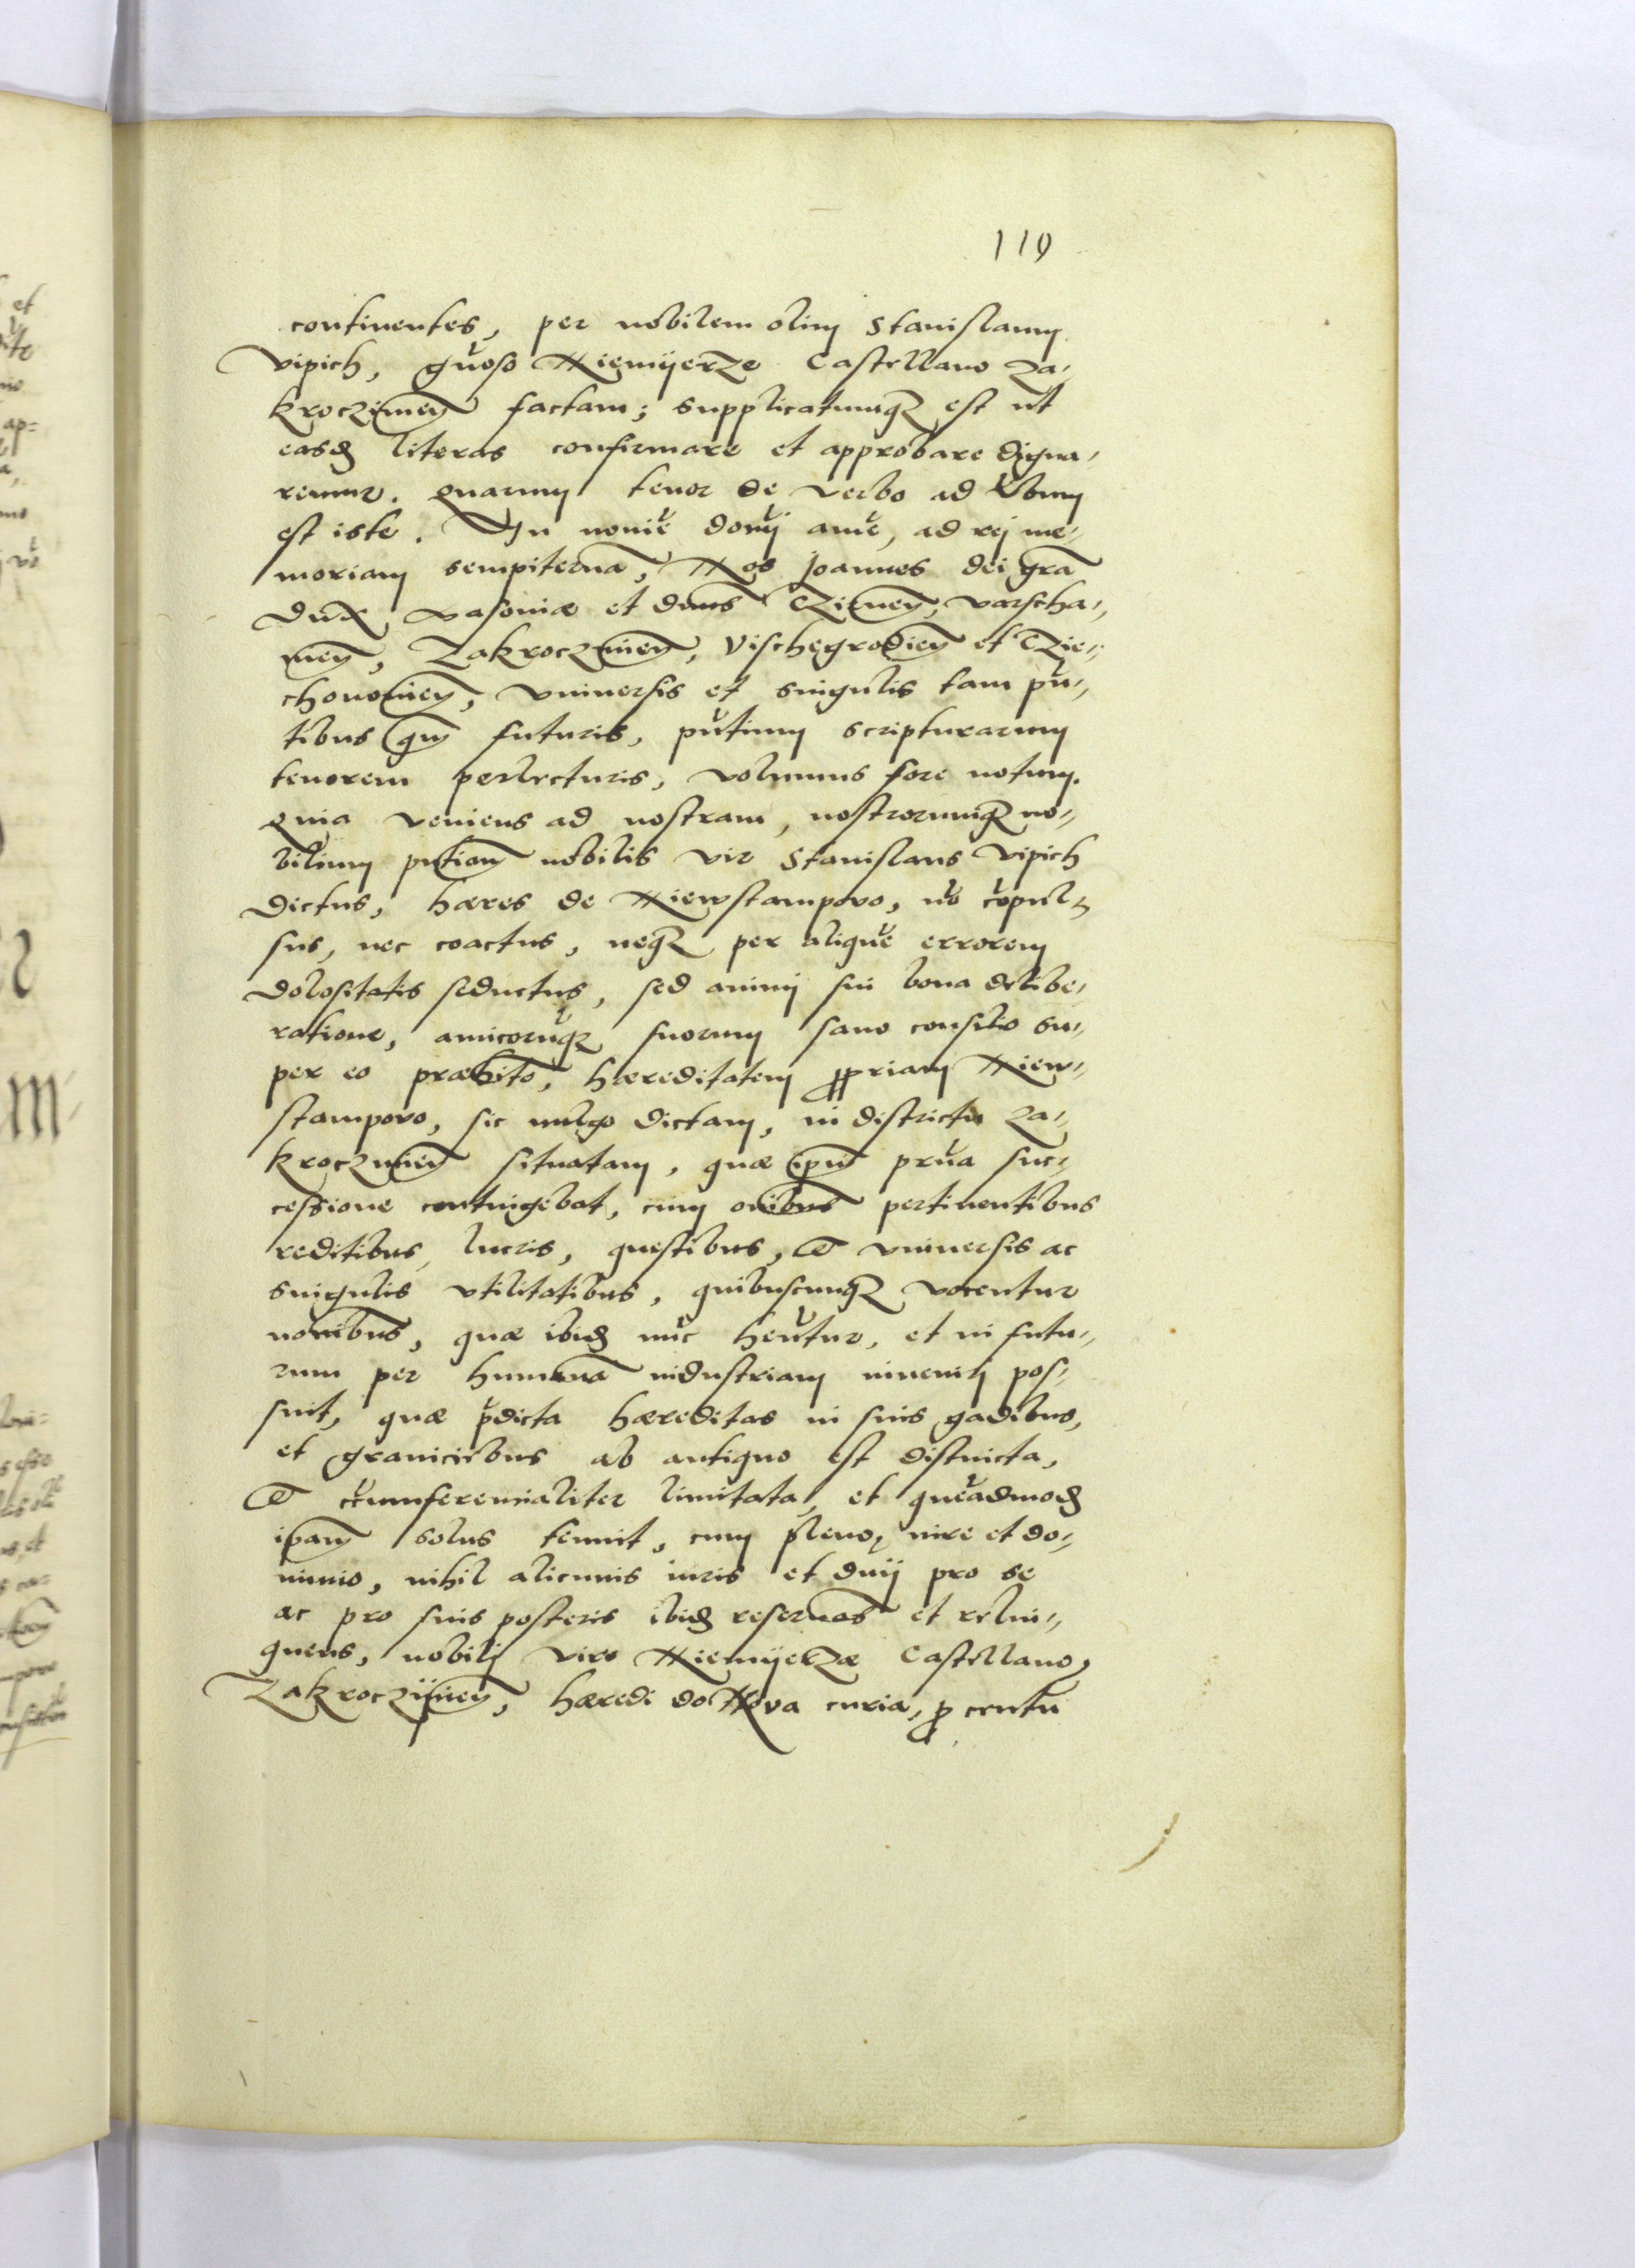 119
continentes, per nobilem olim Stanislaum
Vipich, gn̄oso Niemijerze Castellano Za-
kroczimen̄ factam; supplicatumqȝ est ut
easdē literas confirmare et approbare digna-
remur. Quarum tenor de verbo ad verbum
est iste. In nomīe domĩ amē, ad rej me-
moriam sempiternā, Nos Joannes dei grā
dux Masoviæ et dom̄s Czirnen̄, Varscha-
vien̄, Zakroczimien̄, Vischegrodien̄ et Czie-
chonowien̄, Vniuersis et singulis tam pn̄-
tibus qm̄ futuris, pn̄tium scripturarum
tenorem perlecturis, volumus fore notum.
Quia veniens ad nostram, nostrorumqȝ no-
bilium pn̄tiam nobilis vir Stanislaus Vipich
dictus, hæres de Niewstampowo, nō cōpul-
sus, nec coactus, neqȝ per aliquē errorem
dolositatis seductus, sed animj sui bona delibe-
ratione, amicorūqȝ suorum sano consilio su-
per eo præhito, hæreditatem ꝓpriam Niew-
stampowo, sic vulgo dictam, in districtu Za-
kroczimien̄ situatam, quæ ipm̄ prn̄a suc-
cessione contingebat, cum om̄ibus pertinentibus
reditibus, lucris, questibus, et vniuersis ac
singulis vtilitatibus, quibuscunqȝ vocentur
nom̄ibus, quæ ibidē nūc hēntur, et in futu-
rum per humanā industriam invenirj pos-
sunt, quæ p̄dicta hæreditas in suis gadibus,
et graniciebus ab antiquo est distincta,
et circumferencialiter limitata, et quēadmodū
ipam̄ solus tenuit, cum pleno iure et do-
minio, nihil alicuius iuris et dnĳ pro se
ac pro suis posteris ibidē reseruās et relin-
quens, nobilj viro Niemijerzæ Castellano
Zakroczijmien̄, hæredi de Nova curia, ꝓ centū